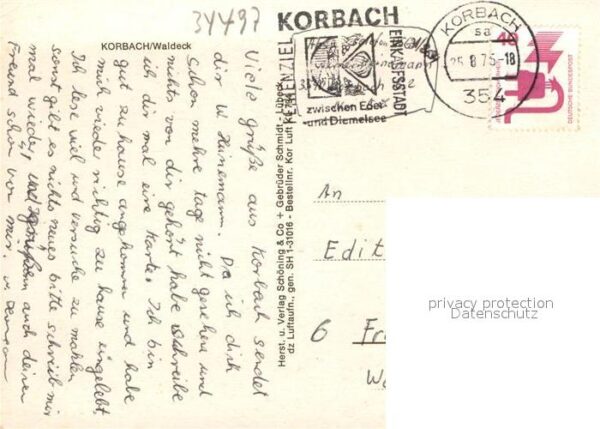 34497
KORBACH/Waldeck
Viele grüße aus Korbach sendet
dir W. Hünemann. Da ich dich
schon mehre tage nicht gesehen und
nichts von dir gehört habe schreibe
ich dir mal eine Karte. Ich bin
gut zu hause angekommen und habe
mich wieder richtig zu hause eingelebt.
Ich lese viel und versuche zu mahlen
sonst gibt es nichts neues bitte schreib mir
mal wieder, und auch deinen
Freund schön von mir.
Herst. u. Verlag Schöning & Co + Gebrüder Schmidt - Lübeck
dz Luftaufn., gen. SH 1-31016 - Bestellnr. Kor Luft
KORBACH
FERIENZIEL
EINKAUFSSTADT
zwischen Eder-
und Diemelsee
KORBACH
sa
25.8.75-18
354
40
DEUTSCHE BUNDESPOST
An
Edit
6 Fr
privacy protection
Datenschutz